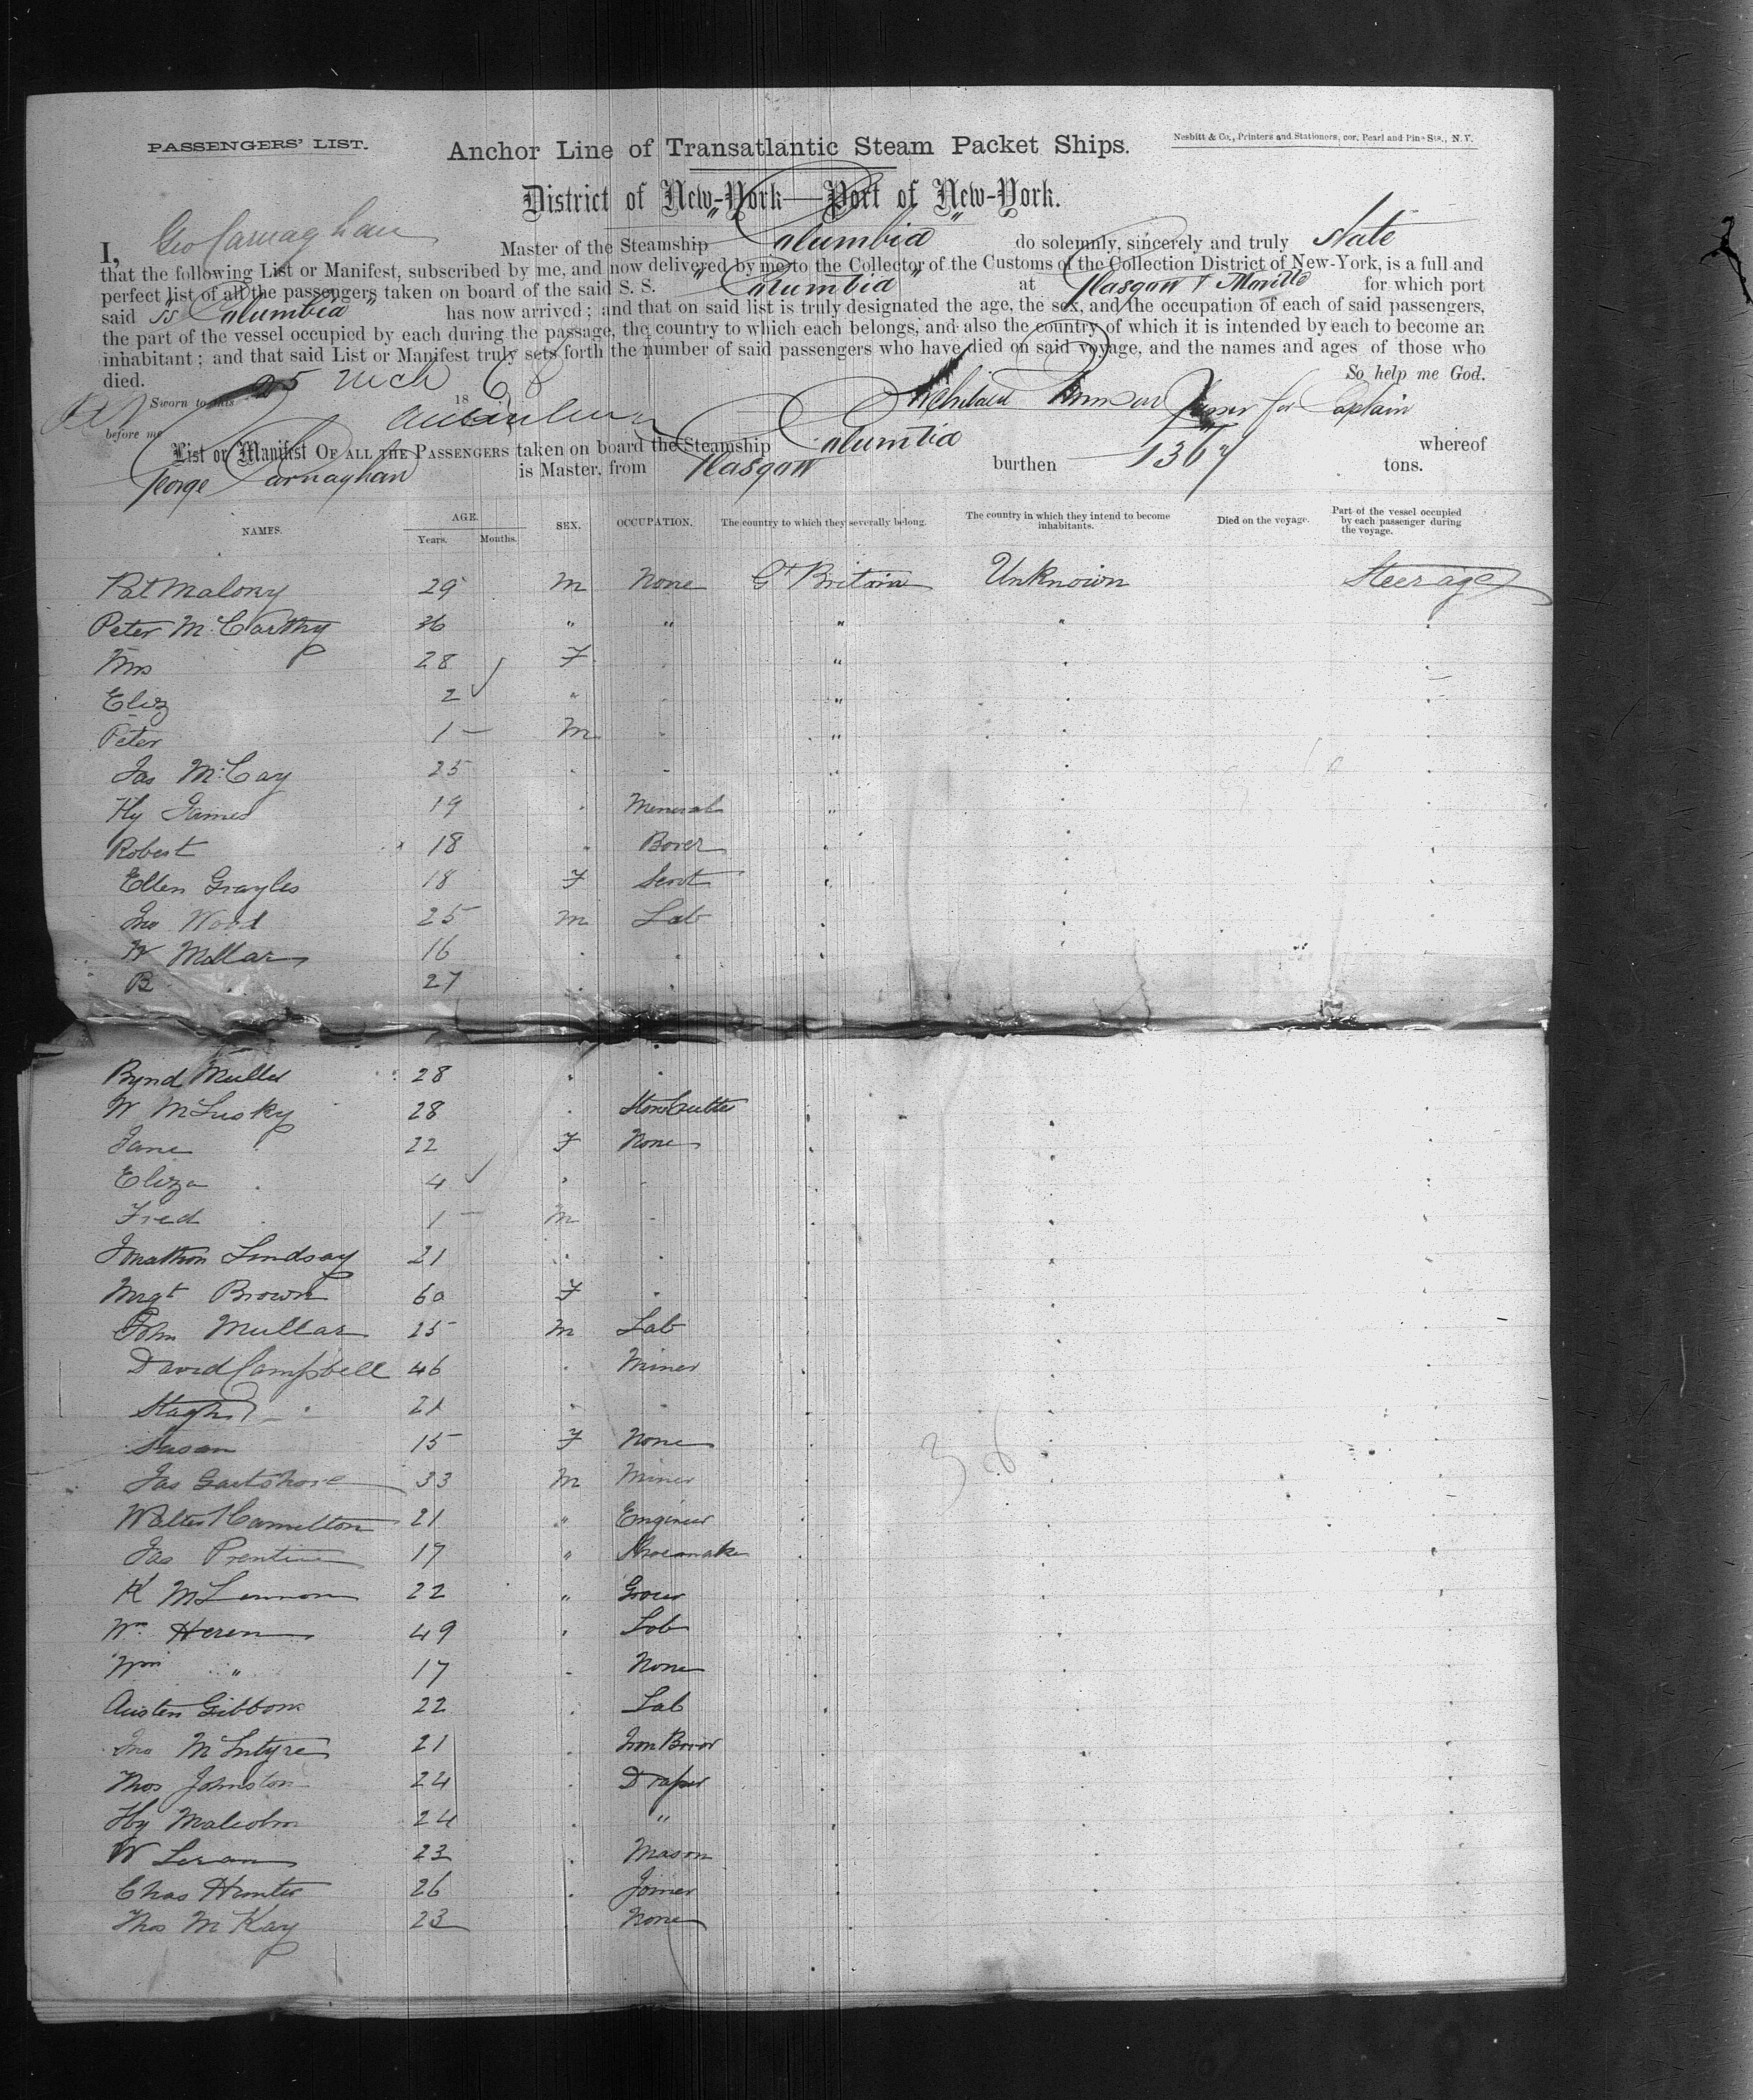 PASSENGERS' LIST.
Anchor Line of Transatlantic Steam Packet Ships.
Nesbitt & Co., Printers and Stationers, cor. Pearl and Pine Sts., N.Y.
District of New-York—Port of New-York.
I, Geo Carnaghan Master of the Steamship "Columbia" do solemnly, sincerely and truly state
that the following List or Manifest, subscribed by me, and now delivered by me to the Collector of the Customs of the Collection District of New-York, is a full and
perfect list of all the passengers taken on board of the said S. S. "Columbia" at Glasgow & Moville for which port
said SS "Columbia" has now arrived; and that on said list is truly designated the age, the sex, and the occupation of each of said passengers,
the part of the vessel occupied by each during the passage, the country to which each belongs, and also the country of which it is intended by each to become an
inhabitant; and that said List or Manifest truly sets forth the number of said passengers who have died on said voyage, and the names and ages of those who
died. So help me God.
Sworn to this 25 Mch 1868
before me Purser for Captain
List or Manifest OF ALL THE PASSENGERS taken on board the Steamship Columbia whereof
George Carnaghan is Master, from Glasgow burthen 1367 tons.
NAMES. AGE. Years. Months. SEX. OCCUPATION. The country to which they severally belong. The country in which they intend to become inhabitants. Died on the voyage. Part of the vessel occupied by each passenger during the voyage.
Pat Malony 29 M None Gt Britain Unknown Steerage
Peter McCarthy 36 " " " "
Mrs 28 F "
Eliz 2 " "
Peter 1 — M "
Jas McCay 25
Hy James 19 Mineral "
Robert 18 Borer
Ellen Grayles 18 F Servt
Jno Wood 25 M Lab
W Millar 16
B 27
28
W McLusky 28 Stone Cutter
Jane 22 F None
Eliza 4
Fred 1 — M
Jonathon Lindsay 21
Mrgt Brown 60 F
John Mullar 25 M Lab
David Campbell 46 Miner
21
Susan 15 F None
Jas Gartshore 33 M Miner
Walter Hamilton 21 " Engineer
Jas Prentice 17 " Shoemaker
K McLennon 22 " Grocer
Wm Heren 49 Lab
Wm " 17 None
Austen Gibbons 22 Lab
Jno McIntyre 21 Iron Borer
Thos Johnston 24 Draper
Hy Malcolm 24 "
W 23 Mason
Chas Hunter 26 Joiner
Thos McKay 23 None
36